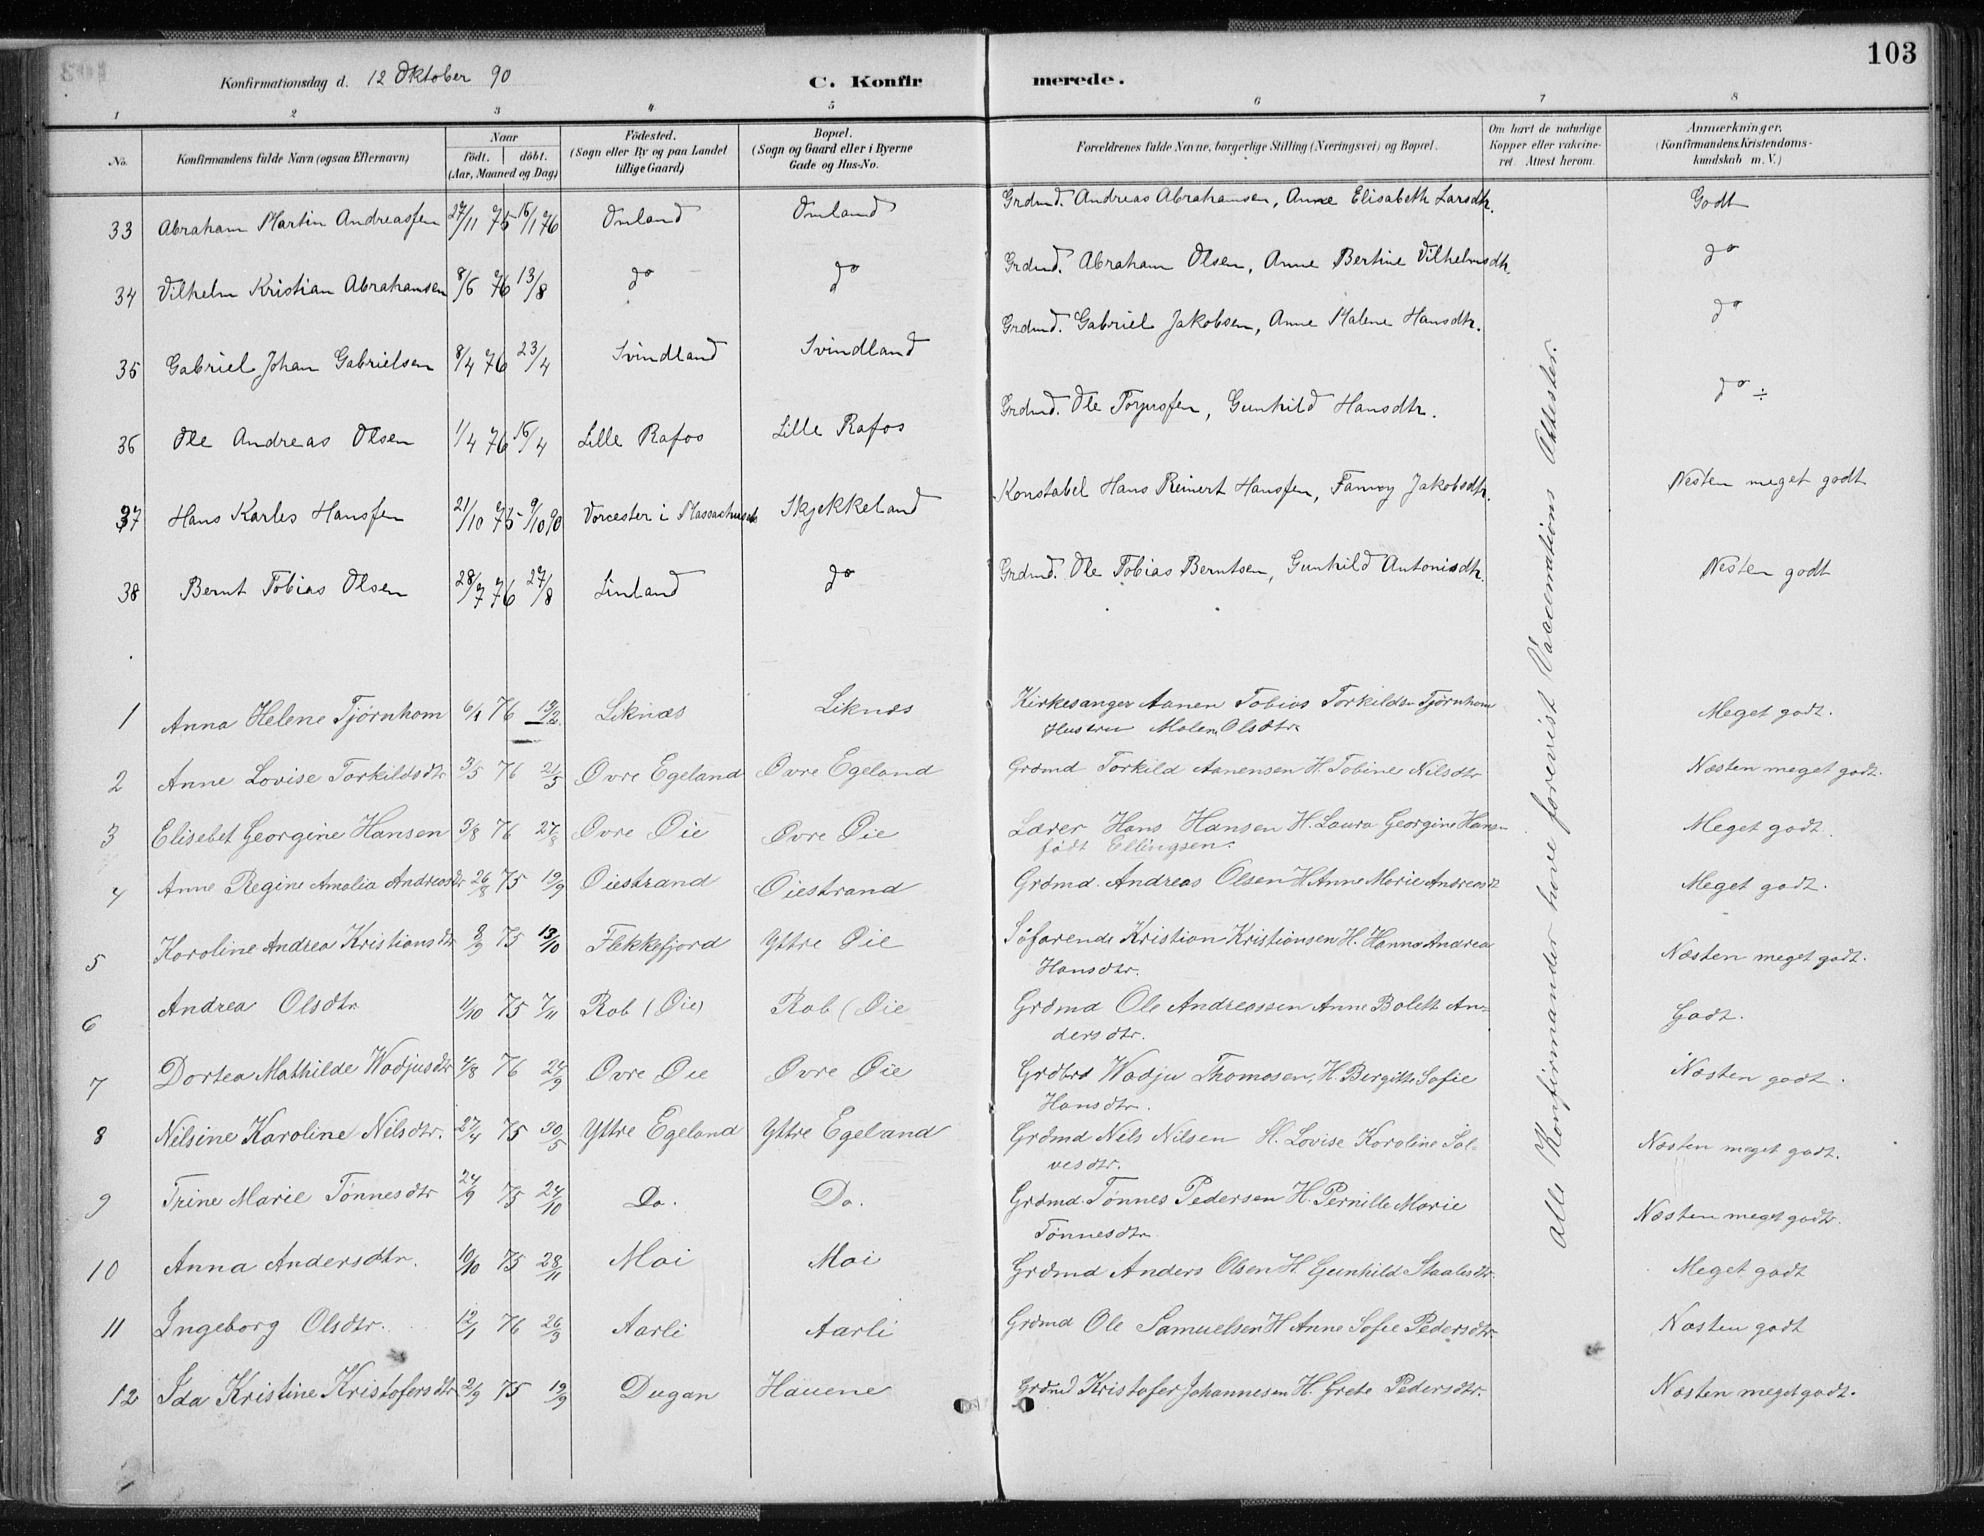 103
Konfirmationsdag d. 12 Oktober 90 C. Konfirmerede.
1 2 3 4 5 6 7 8
No. Konfirmandens fulde Navn (ogsaa Efternavn) Naar födt. döbt. (Aar, Maaned og Dag) Födested. (Sogn eller By og paa Landet tillige Gaard) Bopæl. (Sogn og Gaard eller i Byerne Gade og Hus-No. Forældrenes fulde Navne, borgerlige Stilling (Næringsvei) og Bopæl. Om havt de naturlige Kopper eller vakcineret. Attest herom. Anmærkninger. (Konfirmandens Kristendomskundskab m. V.)
33 Abraham Martin Andreassen 27/11 75 16/1 76 Omland Omland Grdmd. Andreas Abrahamsen, Anne Elisabeth Larsdtr. Godt
34 Vilhelm Kristian Abrahamsen 8/6 76 13/8 do do Grdmd. Abraham Olsen, Anne Bertine Vilhelmsdtr. do
35 Gabriel Johan Gabrielsen 8/4 76 23/4 Svindland Svindland Grdmd. Gabriel Jakobsen, Anne Malene Hansdtr. do
36 Ole Andreas Olsen 1/4 76 16/4 Lille Rafos Lille Rafos Grdmd. Ole Torjussen, Gunhild Hansdtr. do ÷
37 Hans Karles Hanssen 21/10 75 9/10 90 Vorcester i Massachusets Skjekkeland Konstabel Hans Reinert Hanssen, Fanny Jakobsdtr. Nesten meget godt
38 Bernt Tobias Olsen 28/7 76 27/8 Linland do Grdmd. Ole Tobias Berntsen, Gunhild Antonisdtr. Nesten godt
1 Anna Helene Tjørnhom 6/1 76 13/2 Liknæs Liknæs Kirkesanger Aanen Tobias Torkildsn Tjørnhom
Hustru Malen Olsdtr. Meget godt.
2 Anne Lovise Torkildsdtr 3/5 76 21/5 Øvre Egeland Øvre Egeland Grdmd Torkild Aanensen H. Tobine Nilsdtr Næsten meget godt.
3 Elisebet Georgine Hansen 3/8 76 27/8 Øvre Øie Øvre Øie Lærer Hans Hansen H. Laura Georgine Hansn
født Ellingsen. Meget godt.
4 Anne Regine Amalia Andreasdtr 26/8 75 19/9 Øiestrand Øiestrand Grdmd. Andreas Olsen H Anne Marie Andreasdt Meget godt.
5 Karoline Andrea Kristiansdtr 8/9 75 13/10 Flekkefjord Yttre Øie Søfarende Kristian Kristiansen H. Hanna Andrea
Hansdtr. Næsten meget godt.
6 Andrea Olsdtr 11/10 75 7/11 Rob (Øie) Rob (Øie Grdmd Ole Andreassen Anne Bolett An-
dersdtr. Godt.
7 Dortea Mathilde Wadjusdtr 4/8 76 24/9 Øvre Øie Øvre Øie Grdbrd Wadju Thomasen, H. Bergitte Sofie
Hansdtr. Næsten godt.
8 Nilsine Karoline Nilsdtr. 27/4 75 30/5 Yttre Egeland Yttre Egeland Grdmd Nils Nilsen H. Lovise Karoline Sal-
vesdtr. Næsten meget godt.
9 Trine Marie Tønnesdtr 24/9 75 24/10 Do. Do. Grdmd. Tønnes Pedersen H. Pernille Marie
Tønnesdtr. Næsten meget godt.
10 Anna Andersdtr. 10/10 75 28/11 Moi Moi Grdmd Anders Olsen H. Gunhild Staalesdtr. Meget godt
11 Ingeborg Olsdtr. 12/1 76 26/3 Aarli Aarli Grdmd Ole Samuelsen H Anne Sofie Pedersdtr Næsten godt
12 Ida Kristine Kristofersdtr 2/9 75 19/9 Dugan Hauene Grdmd Kristofer Johannesen H. Grete Pedersdtr. Næsten meget godt.
Alle Konfirmander have forevist Vaccinations Attester.